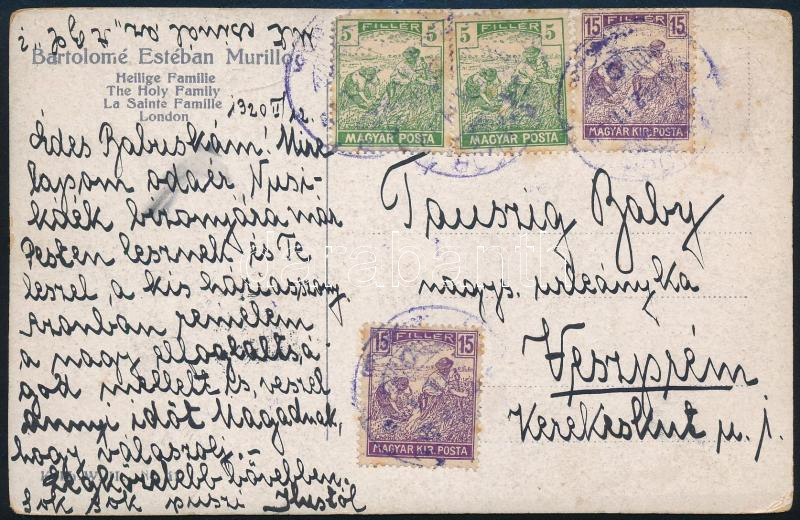 Bartolomé Estéban Murillo
Heilige Familie
The Holy Family
La Sainte Famille
London
1920 II 12.
Édes Babuskám! Mire
lapom odaér, Nusi-
kdék bizonyára már
Pesten lesznek és Te
leszel, a kis háziasszony,
azonban remélem
a nagy elfoglaltsá-
god mellett is, veszel
annyi időt Magadnak,
hogy válaszolj. -
Legközelebb bővebben.
Sok sok puszi Ilustól
Mit csinál az
FILLÉR
5 5
MAGYAR POSTA
FILLÉR
5 5
MAGYAR POSTA
15 FILLÉR
MAGYAR KIR. POSTA
Tauszig Baby
nagys. urleányka
Veszprém
Kerekeskut u. j.
FILLÉR
15 15
MAGYAR KIR. POSTA
darabanth